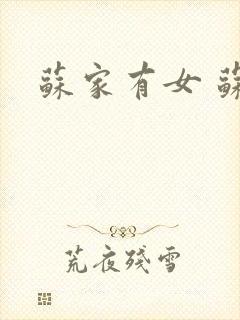 蘇家有女 蘇
荒夜殘雪